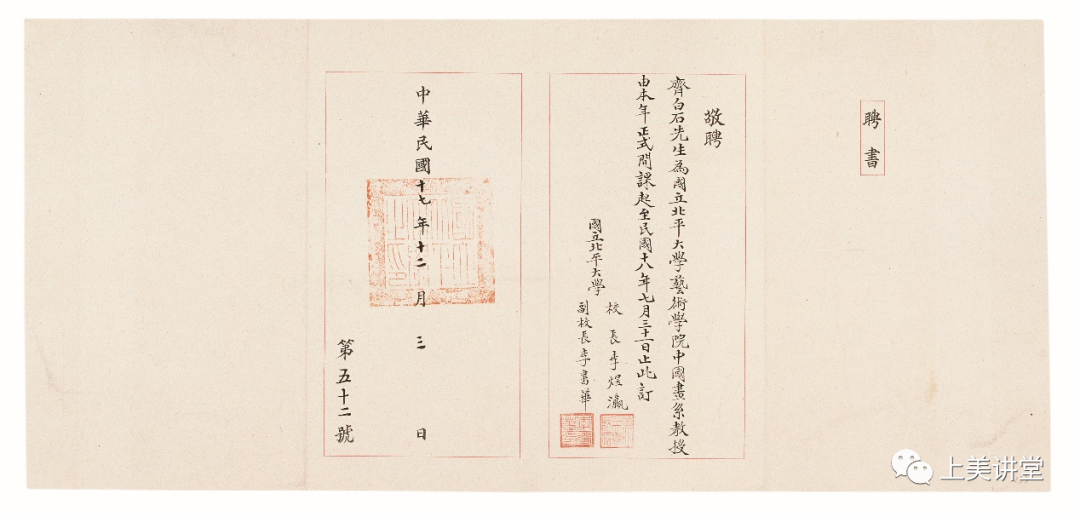 聘書
敬聘
齊白石先生為國立北平大學藝術學院中國畫系教授
由本年正式開課起至民國十八年七月三十一日止此訂
國立北平大學
校長李煜瀛
副校長李書華
中華民國十七年十二月三日
第五十二號
上美讲堂